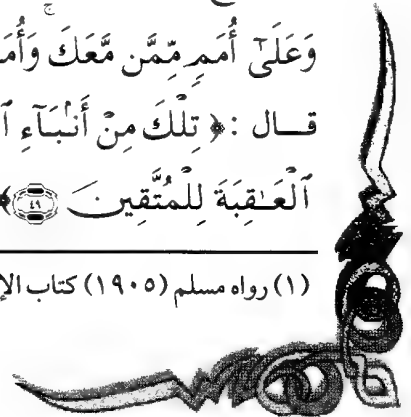 وَعَلَىٰٓ أُمَمٍ مِّمَّن مَّعَكَ ۚ
قال : ﴿ تِلْكَ مِنْ أَنۢبَآءِ
ٱلْعَٰقِبَةَ لِلْمُتَّقِينَ ٤٩ ﴾
(١) رواه مسلم (١٩٠٥) كتاب